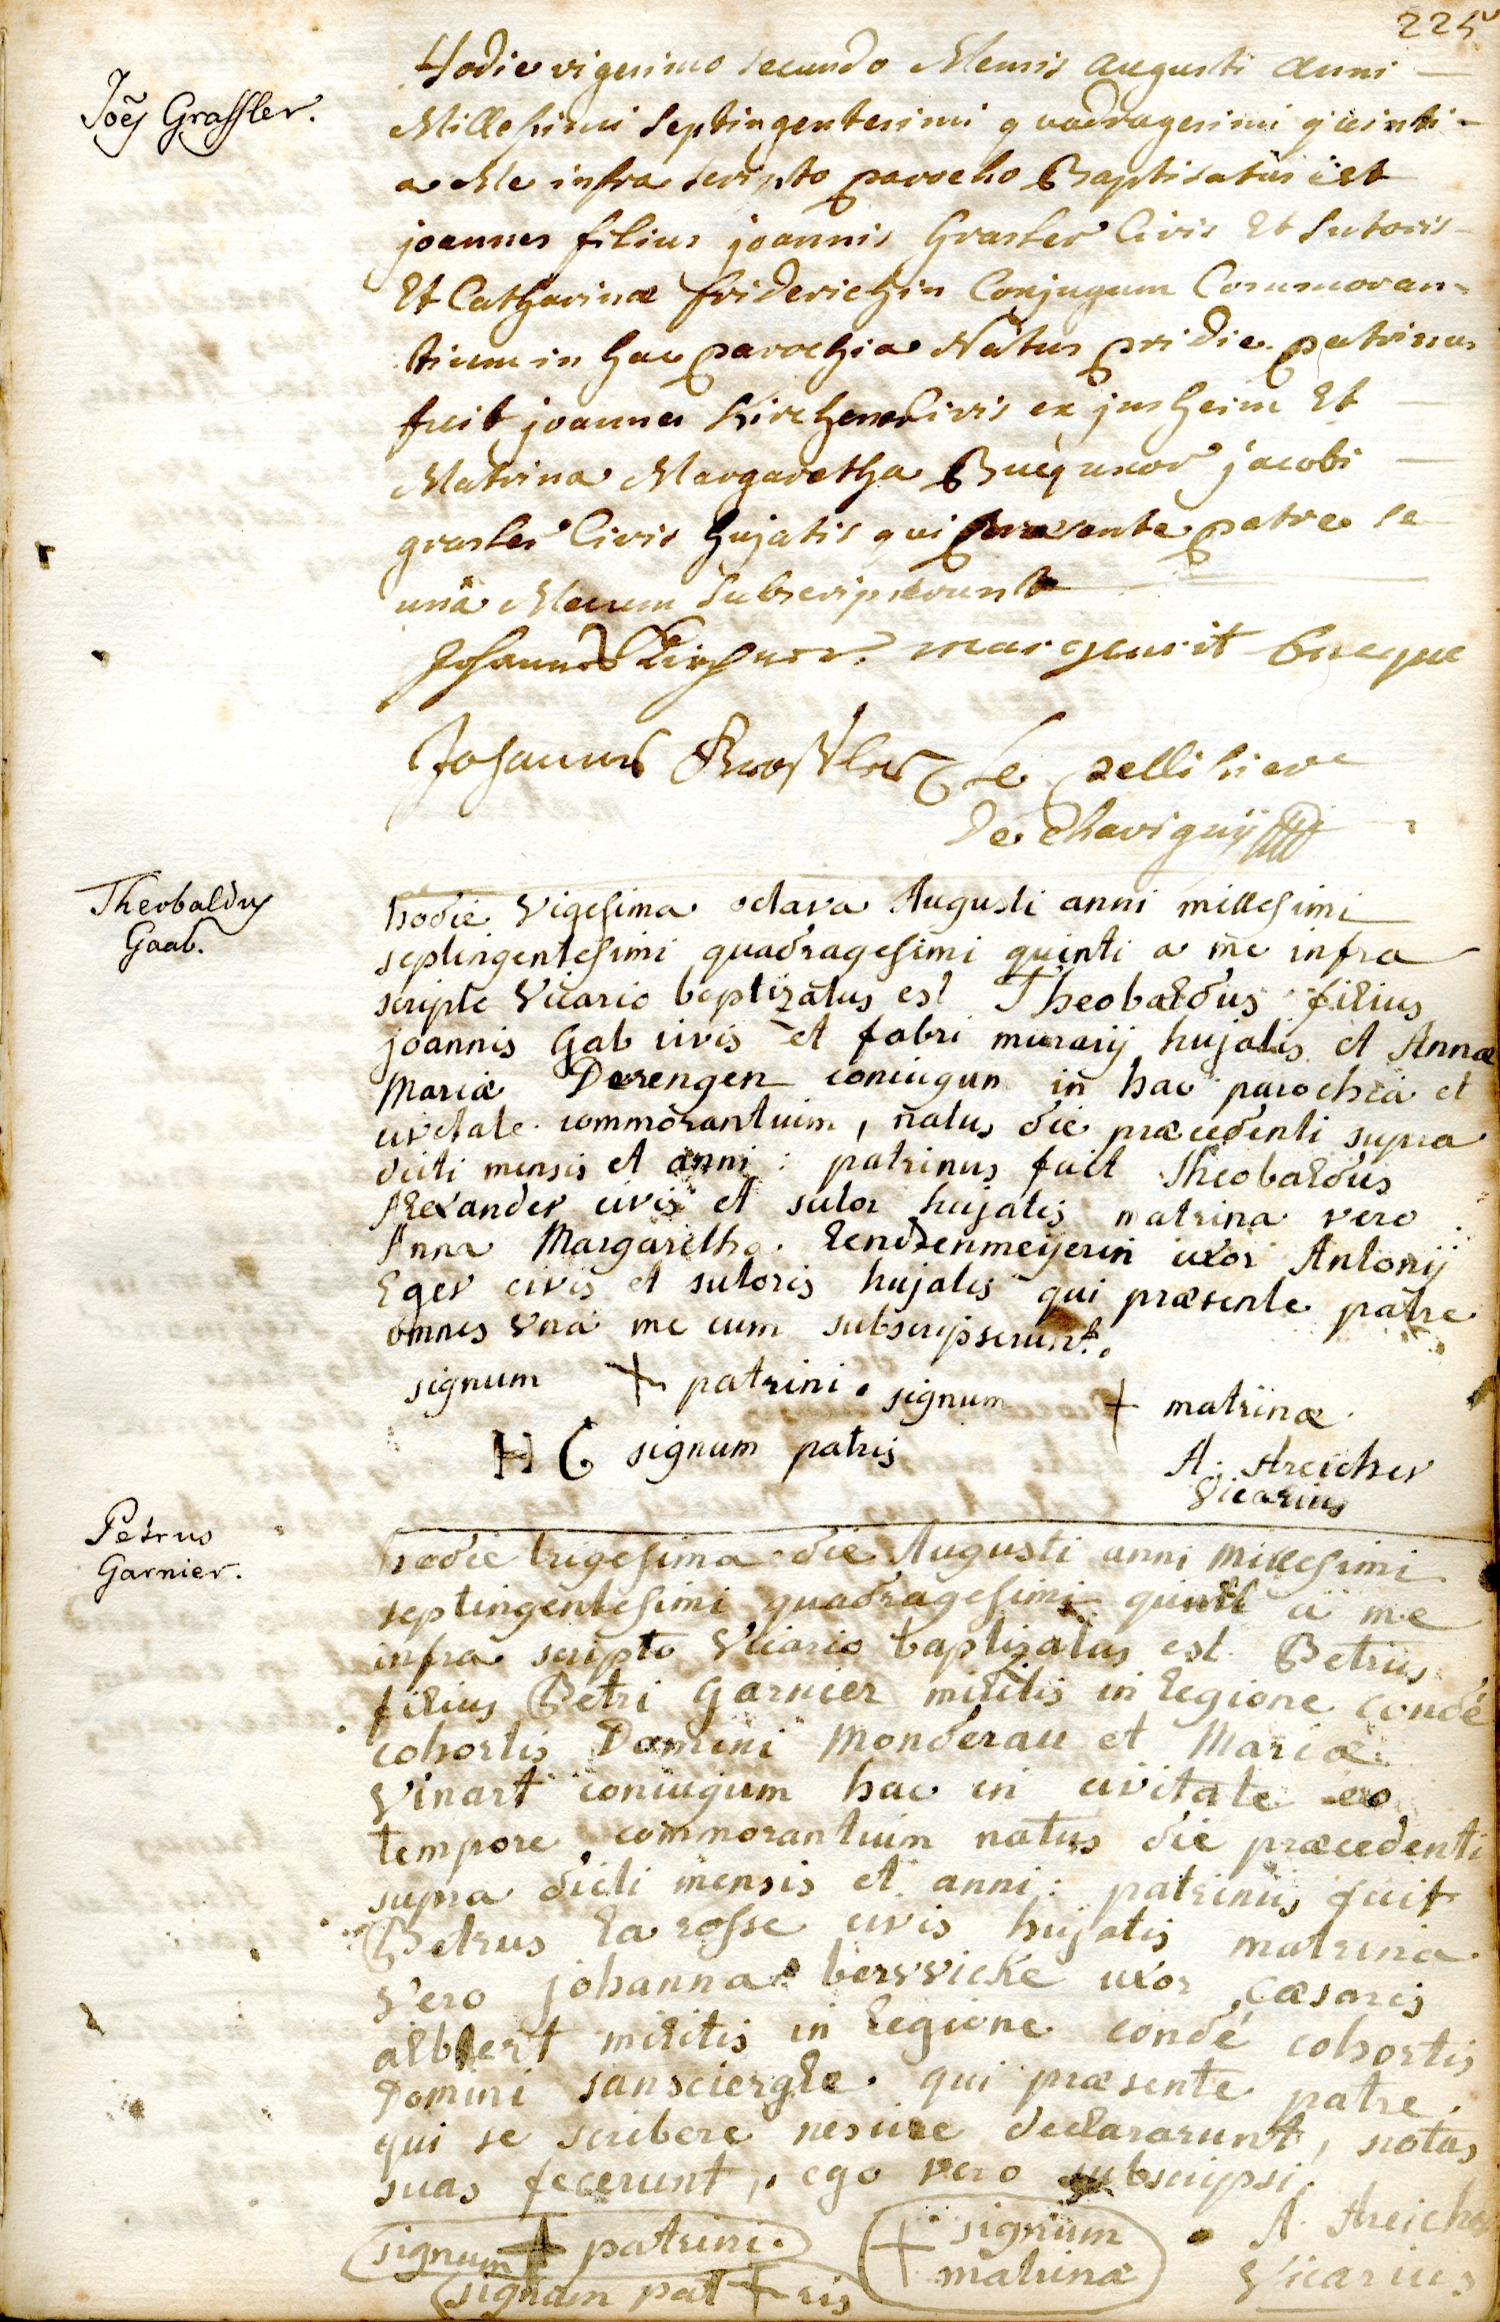 225
Joēs Grassler.
Hodie vigesimo secundo Mensis Augusti Anni
Millesimi Septingentesimi quadragesimi quinti
a Me infra scripto parocho Baptisatus est
joannes filius joannis Grasler Civis Et Sutoris
Et Catharinæ friderichin Conjugum Commoran-
tium in hac parochia Natus pridie patrinus
fuit joannes Kirchener Civis ex jusheim Et
Matrina Margaretha Bueq uxor jacobi
grasler Civis hujatis qui præsente patre se
unà Mecum Subscripserunt
Johannes Kirchner. margeurit bueque
Johannes Grossler Le pellisiere
De Chavignij
Theobaldus
Gaab.
hodie Vigesima octava Augusti anni millesimi
septingentesimi quadragesimi quinti a me infra
scripto Vicario baptizatus est Theobaldus filius
joannis Gab civis et fabri murarij hujatis et Annæ
Mariæ Derengen coniugum in hac parochia et
civitate commorantium, natus die præcedenti supra
dicti mensis et anni: patrinus fuit Theobaldus
Alexander civis et sutor hujatis matrina vero
Anna Margaretha Lendzenmeijerin uxor Antonij
Eger civis et sutoris hujatis qui præsente patre
omnes Vna me cum subscripserunt.
signum + patrini. signum + matrinæ.
H G signum patris
A. Streicher
Vicarius
Petrus
Garnier.
hodie trigesima die Augusti anni Millesimi
septingentesimi quadragesimi quinti a me
infra scripto Vicario baptizatus est Petrus
filius Petri Garnier militis in legione condé
cohortis Domini Monderau et Mariæ
Vinart coniugum hac in civitate eo
tempore commorantium natus die præcedenti
supra dicti mensis et anni: patrinus fuit
Petrus La rosse civis hujatis matrina
Vero johanna bervvicke uxor Cæsaris
albert militis in legione condé cohortis
Domini sansciergle. qui præsente patre.
qui se scribere nescire declararunt, notas
suas fecerunt, ego vero subscripsi.
signum + patrini.
+ signum
matrinæ
A. Streicher
Vicarius
signum pat + ris